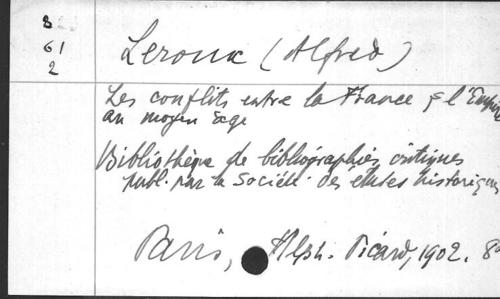 8
61
2
Leroux (Alfred)
Les conflits entre la France & l'Empire
au moyen age
Bibliothèque de bibliographies critiques
publ. par la Société des etudes historiques
Paris, Alph. Picard, 1902. 8°